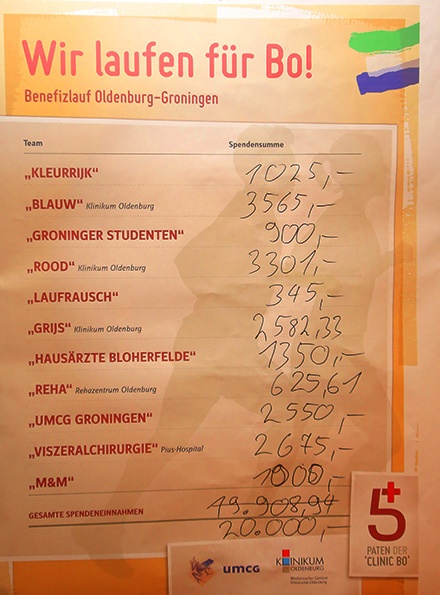 Wir laufen für Bo!
Benefizlauf Oldenburg-Groningen
Team Spendensumme
„KLEURRIJK“ 1025,-
„BLAUW“ Klinikum Oldenburg 3565,-
„GRONINGER STUDENTEN“ 900,-
„ROOD“ Klinikum Oldenburg 3301,-
„LAUFRAUSCH“ 345,-
„GRIJS“ Klinikum Oldenburg 2582,33
„HAUSÄRZTE BLOHERFELDE“ 1350,-
„REHA“ Rehazentrum Oldenburg 625,61
„UMCG GRONINGEN“ 2550,-
„VISZERALCHIRURGIE“ Pius-Hospital 2675,-
„M&M“ 1000,-
GESAMTE SPENDENEINNAHMEN 19.908,94
20.000,-
5+
PATEN DER
'CLINIC BO'
umcg
KLINIKUM
OLDENBURG